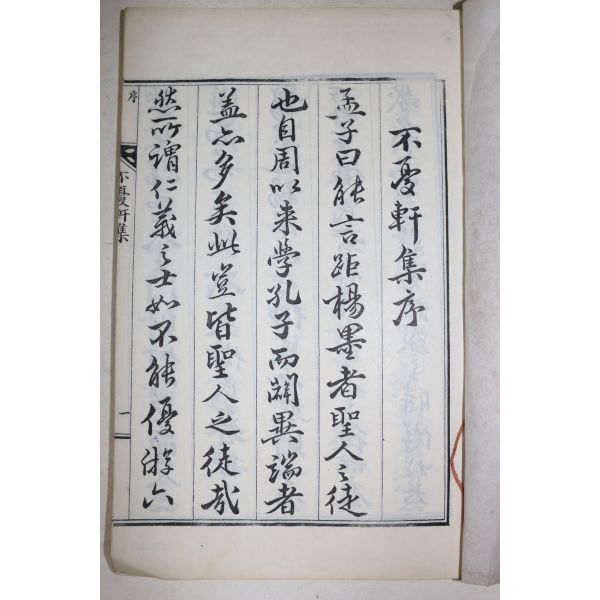 不憂軒集序
孟子曰能言距楊墨者聖人之徒
也自周以来学孔子而闢異端者
盖亦多矣此豈皆聖人之徒哉
然所謂仁義之士如不能優游六
序
不憂軒集
一